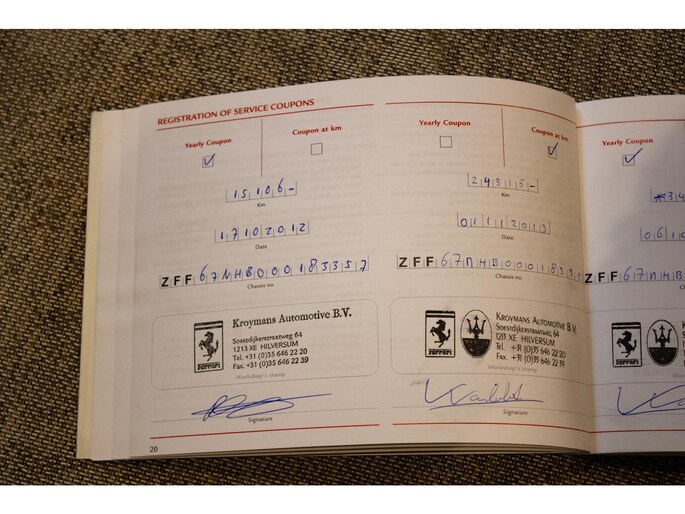 REGISTRATION OF SERVICE COUPONS
Yearly Coupon
Coupon at km
15106-
Km
17102012
Date
ZFF67NHB000183357
Chassis no.
Kroymans Automotive B.V.
Soestdijkerstraatweg 64
1213 XE HILVERSUM
Tel. +31 (0)35 646 22 20
Fax. +31 (0)35 646 22 39
Ferrari
Workshop's stamp
Signature
20
Yearly Coupon
Coupon at km
24315-
Km
01112013
Date
ZFF67NHB00018335
Chassis no.
KROYMANS AUTOMOTIVE B.V.
Soestdijkerstraatweg 64
1213 XE HILVERSUM
Tel. +31 (0)35 646 22 20
Fax. +31 (0)35 646 22 39
Ferrari
Workshop's stamp
Signature
Yearly Coupon
34
0610
ZFF67NHB
Ferrari